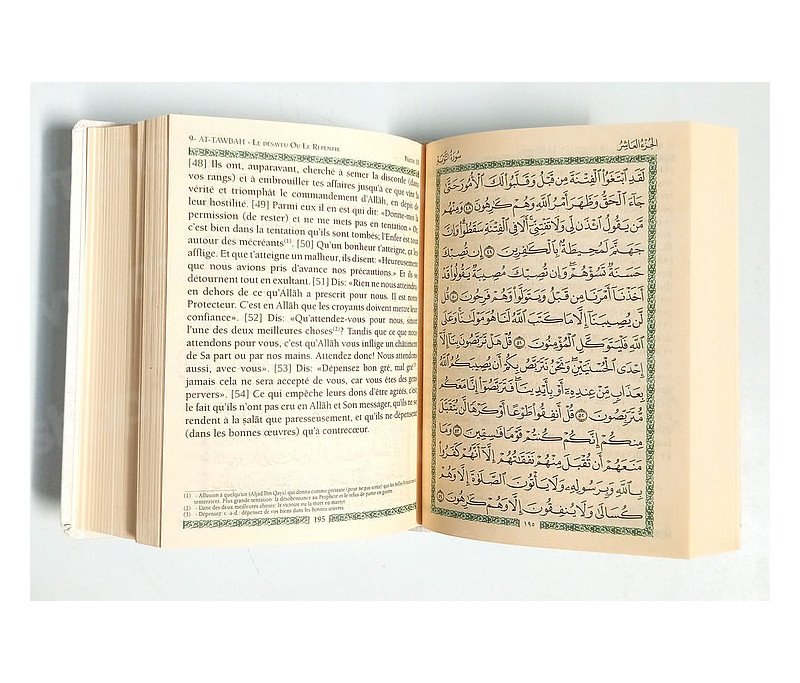 9- AT-TAWBAH - LE DÉSAVEU OU LE REPENTIR
PARTIE 10
[48] Ils ont, auparavant, cherché à semer la discorde (dans
vos rangs) et à embrouiller tes affaires jusqu'à ce que vînt la
vérité et triomphât le commandement d'Allāh, en dépit de
leur hostilité. [49] Parmi eux il en est qui dit: «Donne-moi la
permission (de rester) et ne me mets pas en tentation.» Or,
c'est bien dans la tentation qu'ils sont tombés; l'Enfer est tout
autour des mécréants(1). [50] Qu'un bonheur t'atteigne, ça les
afflige. Et que t'atteigne un malheur, ils disent: «Heureusement
que nous avions pris d'avance nos précautions.» Et ils se
détournent tout en exultant. [51] Dis: «Rien ne nous atteindra,
en dehors de ce qu'Allāh a prescrit pour nous. Il est notre
Protecteur. C'est en Allāh que les croyants doivent mettre leur
confiance». [52] Dis: «Qu'attendez-vous pour nous, sinon
l'une des deux meilleures choses(2)? Tandis que ce que nous
attendons pour vous, c'est qu'Allāh vous inflige un châtiment
de Sa part ou par nos mains. Attendez donc! Nous attendons
aussi, avec vous». [53] Dis: «Dépensez bon gré, mal gré(3)
jamais cela ne sera accepté de vous, car vous êtes des gens
pervers». [54] Ce qui empêche leurs dons d'être agréés, c'est
le fait qu'ils n'ont pas cru en Allāh et Son messager, qu'ils ne se
rendent à la ṣalāt que paresseusement, et qu'ils ne dépensent
(dans les bonnes œuvres) qu'à contrecœur.
(1) - Allusion à quelqu'un (Aljad Ibn Qays) qui donna comme prétexte (pour ne pas sortir) que les belles
tenteraient. Plus grande tentation: la désobéissance au Prophète et le refus de partir en guerre.
(2) - L'une des deux meilleures choses: la victoire ou la mort en martyr.
(3) - Dépensez: c.-à-d.: dépensez de vos biens dans les bonnes œuvres.
195
الجزء العاشر
سورة التوبة
لَقَدِ ابْتَغَوُا الْفِتْنَةَ مِن قَبْلُ وَقَلَّبُوا لَكَ الْأُمُورَ حَتَّىٰ
جَاءَ الْحَقُّ وَظَهَرَ أَمْرُ اللَّهِ وَهُمْ كَارِهُونَ ٤٨ وَمِنْهُم
مَّن يَقُولُ ائْذَن لِّي وَلَا تَفْتِنِّي أَلَا فِي الْفِتْنَةِ سَقَطُوا وَإِنَّ
جَهَنَّمَ لَمُحِيطَةٌ بِالْكَافِرِينَ ٤٩ إِن تُصِبْكَ
حَسَنَةٌ تَسُؤْهُمْ وَإِن تُصِبْكَ مُصِيبَةٌ يَقُولُوا قَدْ
أَخَذْنَا أَمْرَنَا مِن قَبْلُ وَيَتَوَلَّوا وَّهُمْ فَرِحُونَ ٥٠ قُل
لَّن يُصِيبَنَا إِلَّا مَا كَتَبَ اللَّهُ لَنَا هُوَ مَوْلَانَا وَعَلَى
اللَّهِ فَلْيَتَوَكَّلِ الْمُؤْمِنُونَ ٥١ قُلْ هَلْ تَرَبَّصُونَ بِنَا إِلَّا
إِحْدَى الْحُسْنَيَيْنِ وَنَحْنُ نَتَرَبَّصُ بِكُمْ أَن يُصِيبَكُمُ اللَّهُ
بِعَذَابٍ مِّنْ عِندِهِ أَوْ بِأَيْدِينَا فَتَرَبَّصُوا إِنَّا مَعَكُم
مُّتَرَبِّصُونَ ٥٢ قُلْ أَنفِقُوا طَوْعًا أَوْ كَرْهًا لَّن يُتَقَبَّلَ
مِنكُمْ إِنَّكُمْ كُنتُمْ قَوْمًا فَاسِقِينَ ٥٣ وَمَا
مَنَعَهُمْ أَن تُقْبَلَ مِنْهُمْ نَفَقَاتُهُمْ إِلَّا أَنَّهُمْ كَفَرُوا
بِاللَّهِ وَبِرَسُولِهِ وَلَا يَأْتُونَ الصَّلَاةَ إِلَّا وَهُمْ
كُسَالَىٰ وَلَا يُنفِقُونَ إِلَّا وَهُمْ كَارِهُونَ ٥٤
١٩٥